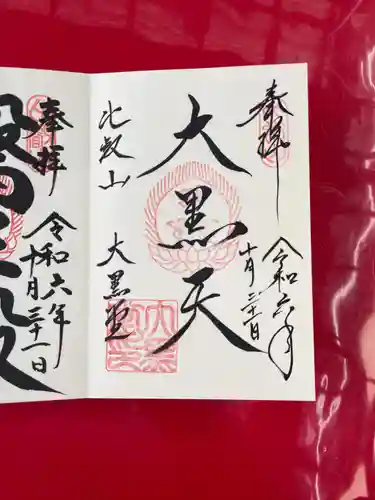 奉拝
令和六年
十月三十一日
大黒天
比叡山 大黒堂
奉拝
令和六年
十月三十一日